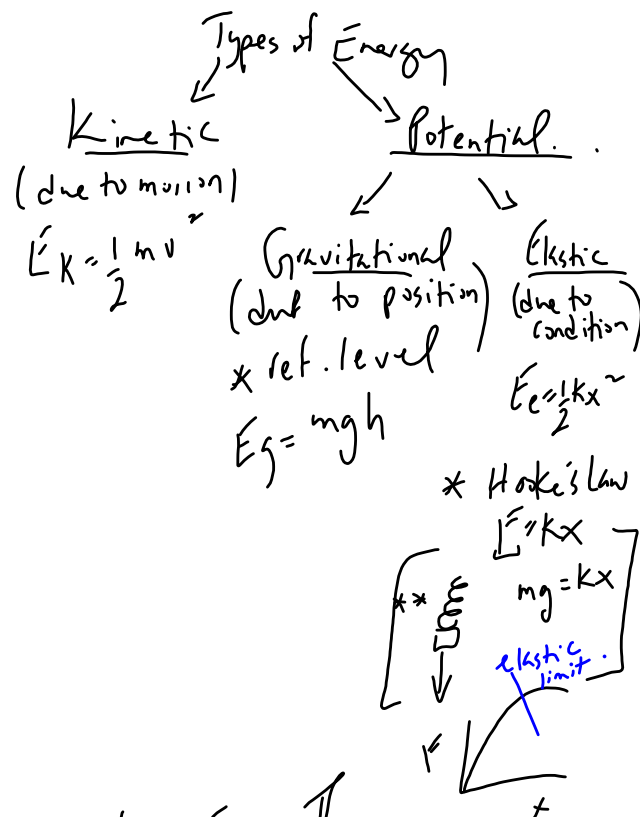 Types of Energy
Kinetic
(due to motion)
E_K = 1/2 mv²
Potential.
Gravitational
(due to position)
* ref. level
Eg = mgh
Elastic
(due to
condition)
Ee = 1/2 kx²
* Hooke's Law
F = kx
mg = kx
**
elastic
limit.
F
x